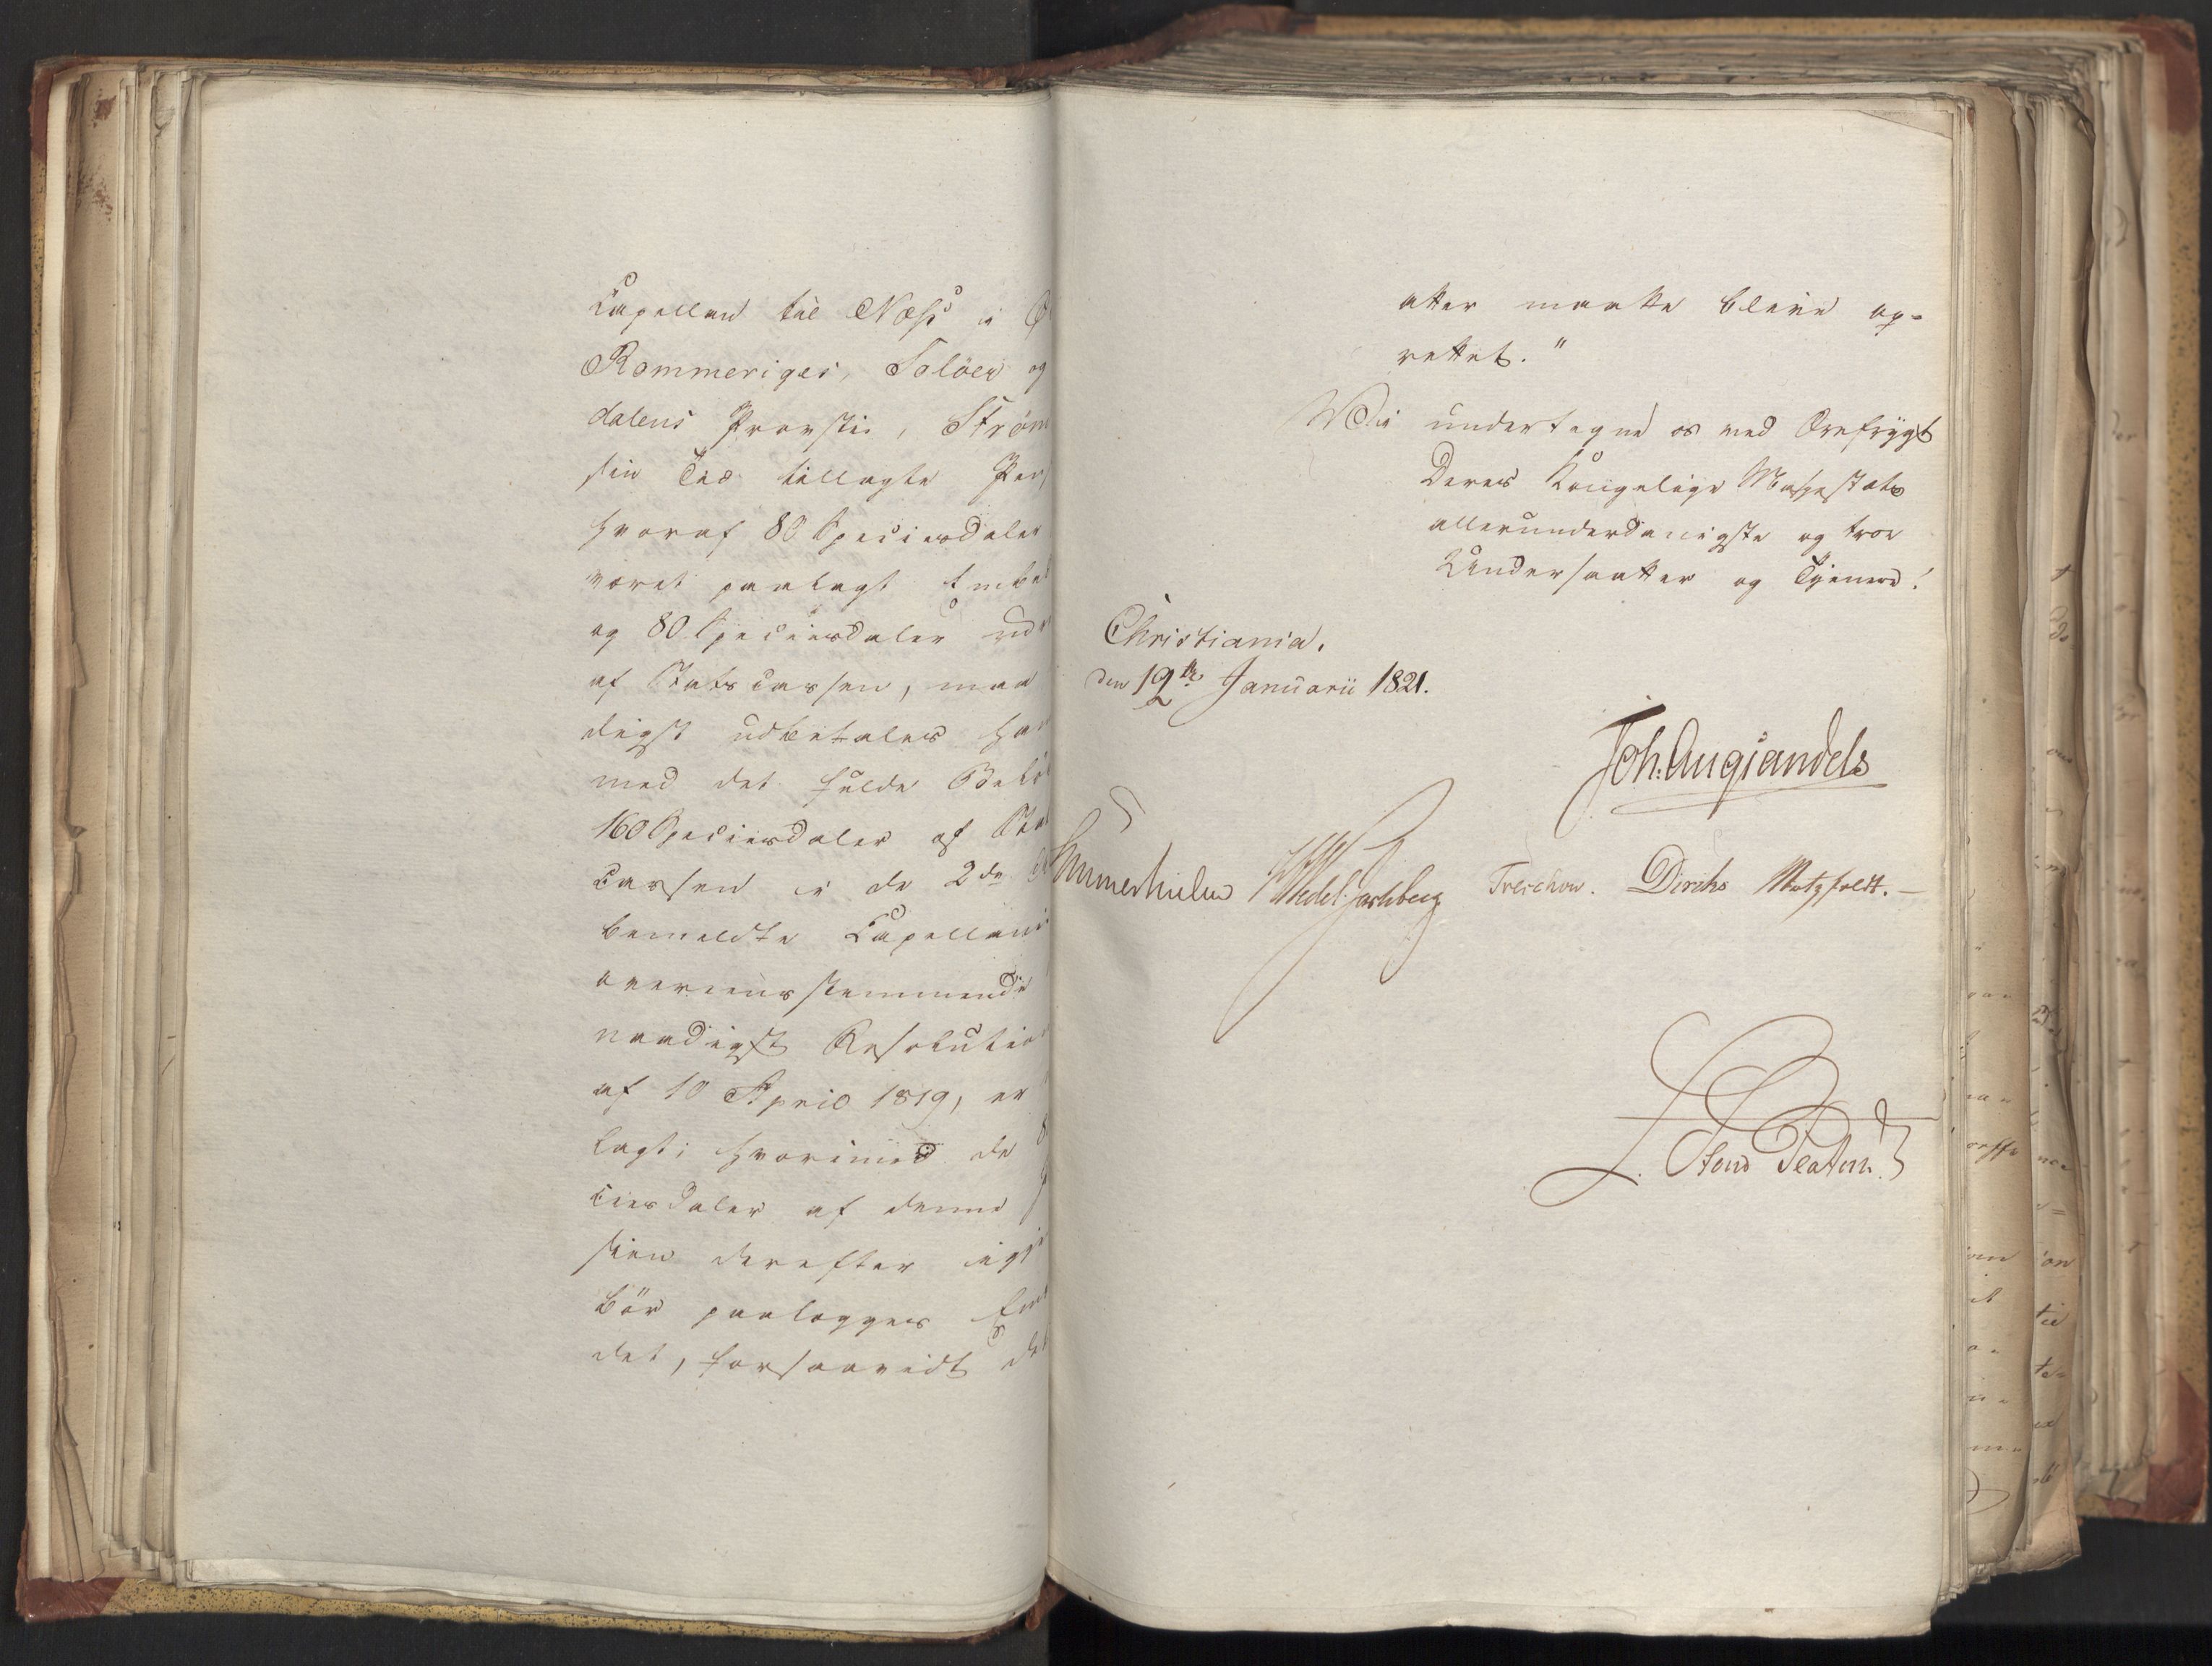 Capellan til Næss i Ø
Rommeriges, Solöer og
dalens Provstie, Ström
sin Tid tillagte Pen
hvoraf 80 Speciesdaler
været paalagt Embe
og 80 Speciesdaler udr
af Statscassen, maa
digst udbetales ha
med det fulde Belö
160 Speciesdaler af Sta
cassen i de 2de
bemeldte Capellani
overeensstemmende
naadigst Resolution
af 10 April 1819, er
lagt; hvorimod de 8
ciesdaler af denne
sion derefter igje
bör paalægges Em
det, forsaavidt det
atter maatte blive op-
rettet."
Vi undertegne os med Ærefrygt
Deres Kongelige Majestæts
allerunderdanigste og troe
Undersaatter og Tjenere!
Christiania.
den 19de Januarii 1821.
2
Joh: Aug: Sandels
Sommerhielm Wedel-Jarlsberg Treschow. Diriks Motzfeldt. —
L. Stoud Platou.